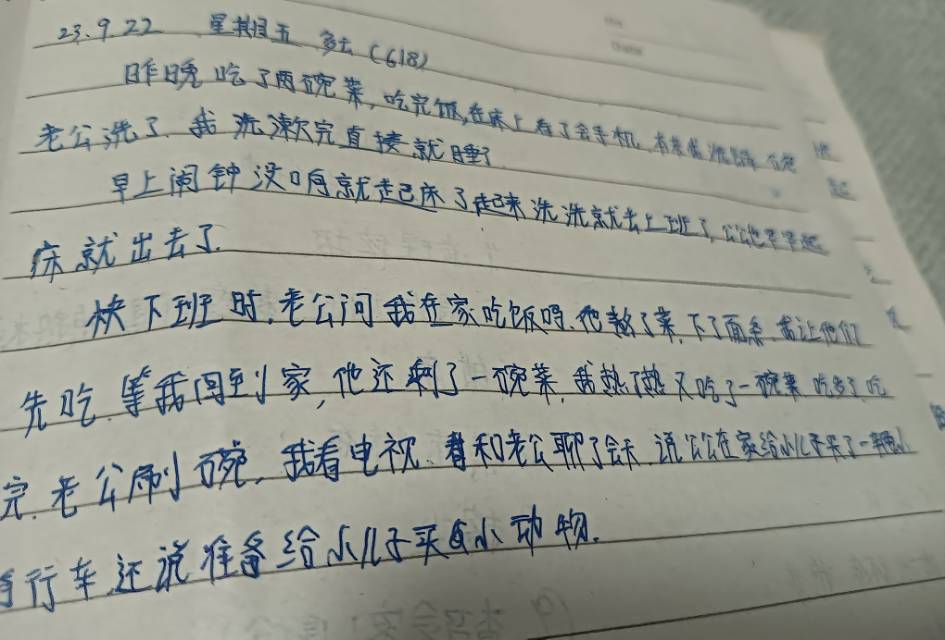 23.9.22 星期五 多云 (618)
昨晚吃了两碗菜,吃完饭,在床上看了会手机,
老公洗了 我洗漱完直接就睡了
早上闹钟没响就起床了起来洗洗就去上班了,公公也早早起
床就出去了.
快下班时,老公问我在家吃饭吗.他熬了菜,下了面条,我让他们
先吃.等我回到家,他还剩了一碗菜,我热了热又吃了一碗菜 吃多了,吃
完.老公刷碗,我看电视.看和老公聊了会天.说公公在家给小儿子买了一辆小
自行车还说准备给小儿子买点小动物.